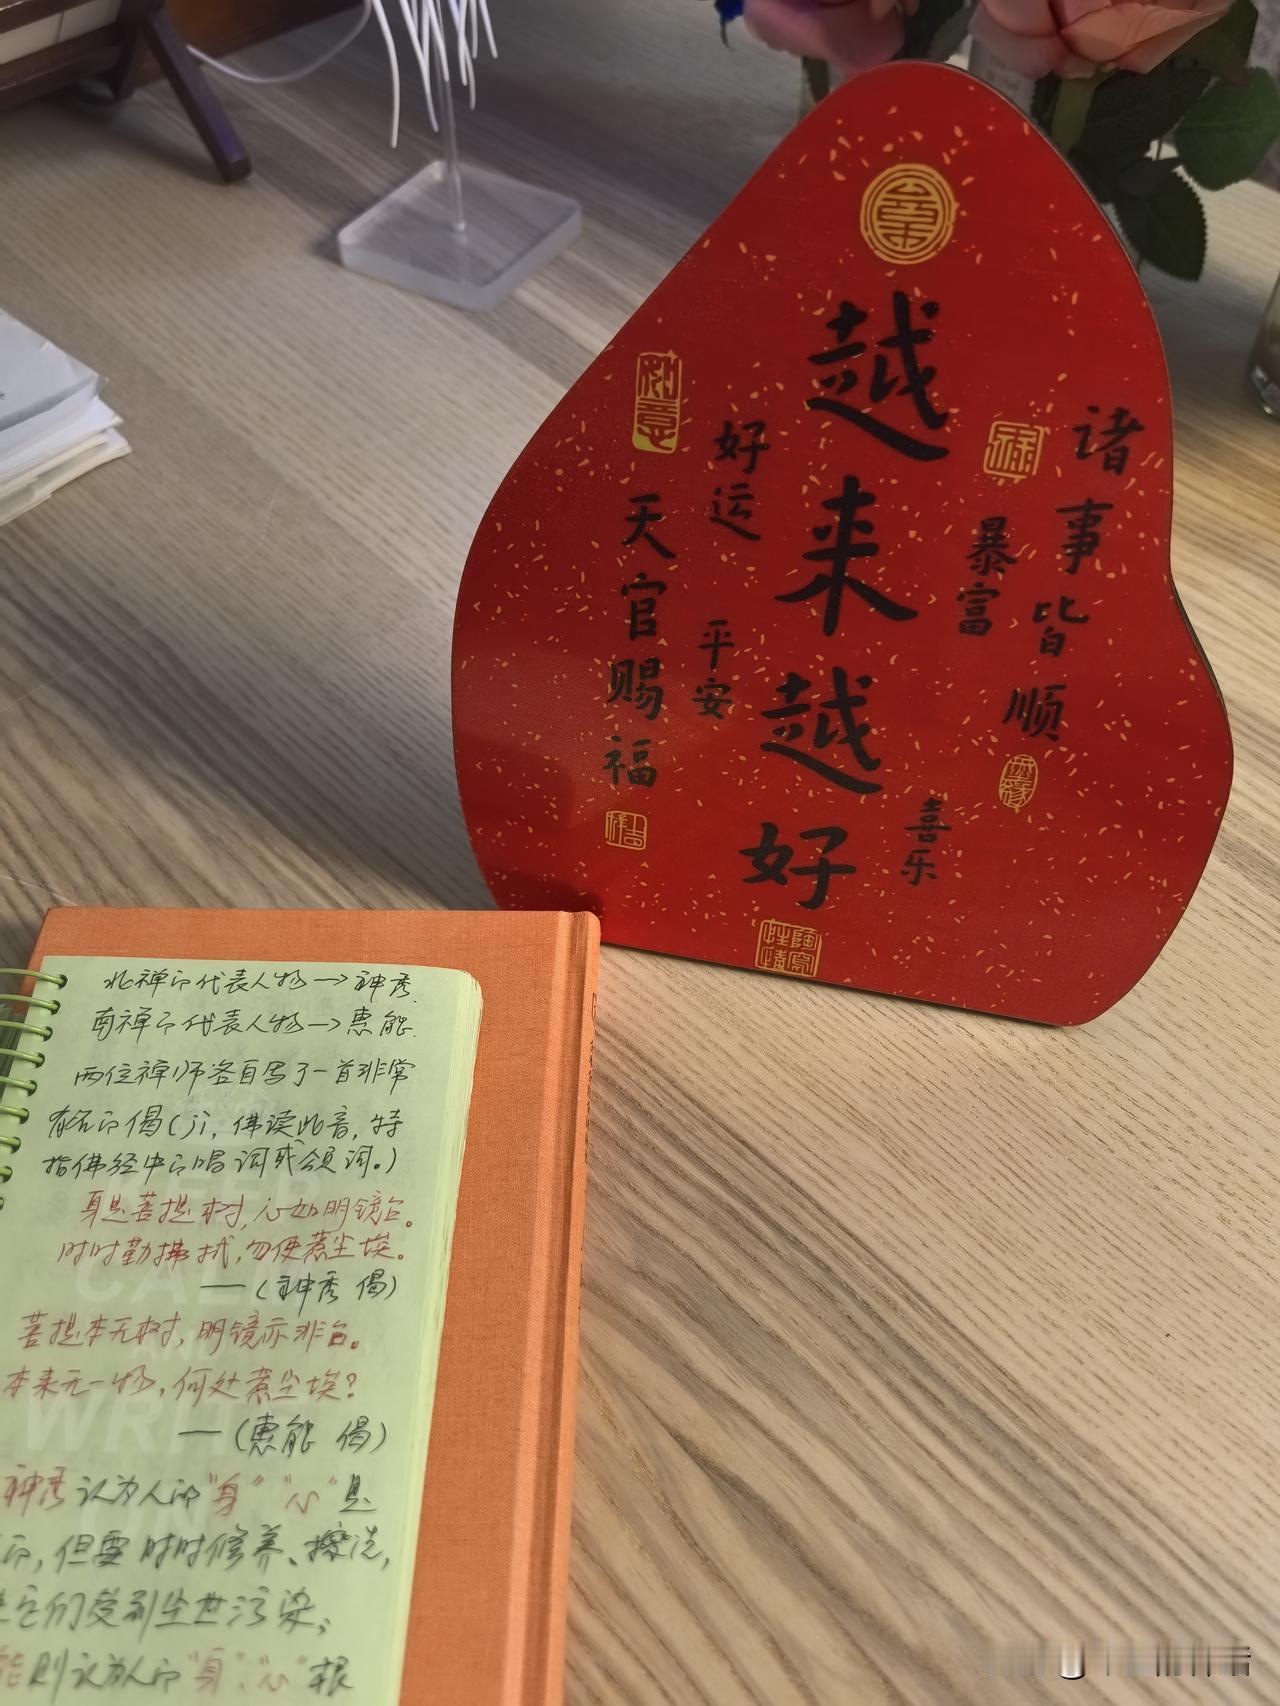 越来越好
诸事皆顺
暴富
喜乐
好运
平安
天官赐福
北禅的代表人物→神秀.
南禅的代表人物→惠能.
两位禅师各自写了一首非常
有名的偈(jì,佛读此音,特
指佛经中的唱词或颂词。)
身是菩提树,心如明镜台。
时时勤拂拭,勿使惹尘埃。
—(神秀 偈)
菩提本无树,明镜亦非台。
本来无一物,何处惹尘埃?
—(惠能 偈)
神秀认为人的“身”“心”是
的,但要时时修养、擦洗,
它们受到尘世污染;
能则认为人的“身”“心”根